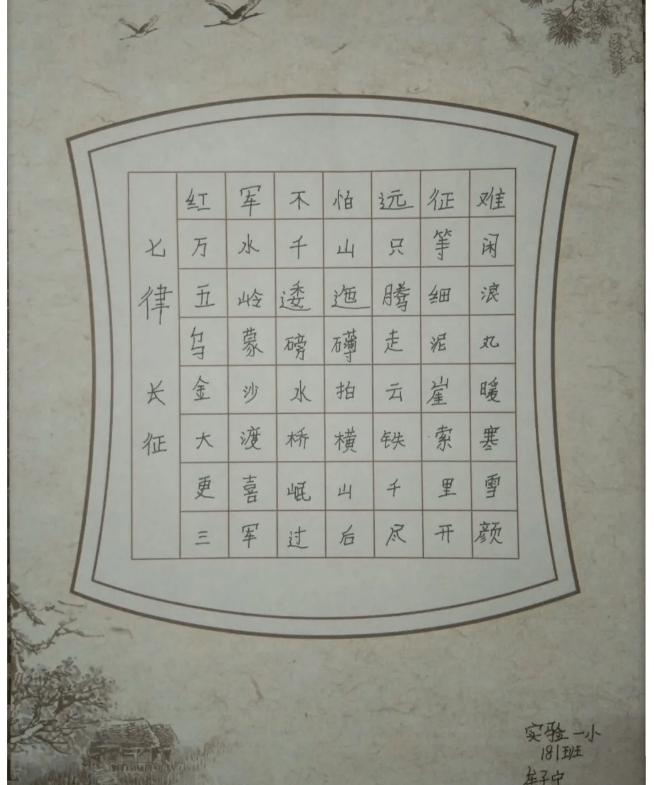 七律 长征
红军不怕远征难
万水千山只等闲
五岭逶迤腾细浪
乌蒙磅礴走泥丸
金沙水拍云崖暖
大渡桥横铁索寒
更喜岷山千里雪
三军过后尽开颜
实验一小
181班
牟子宁